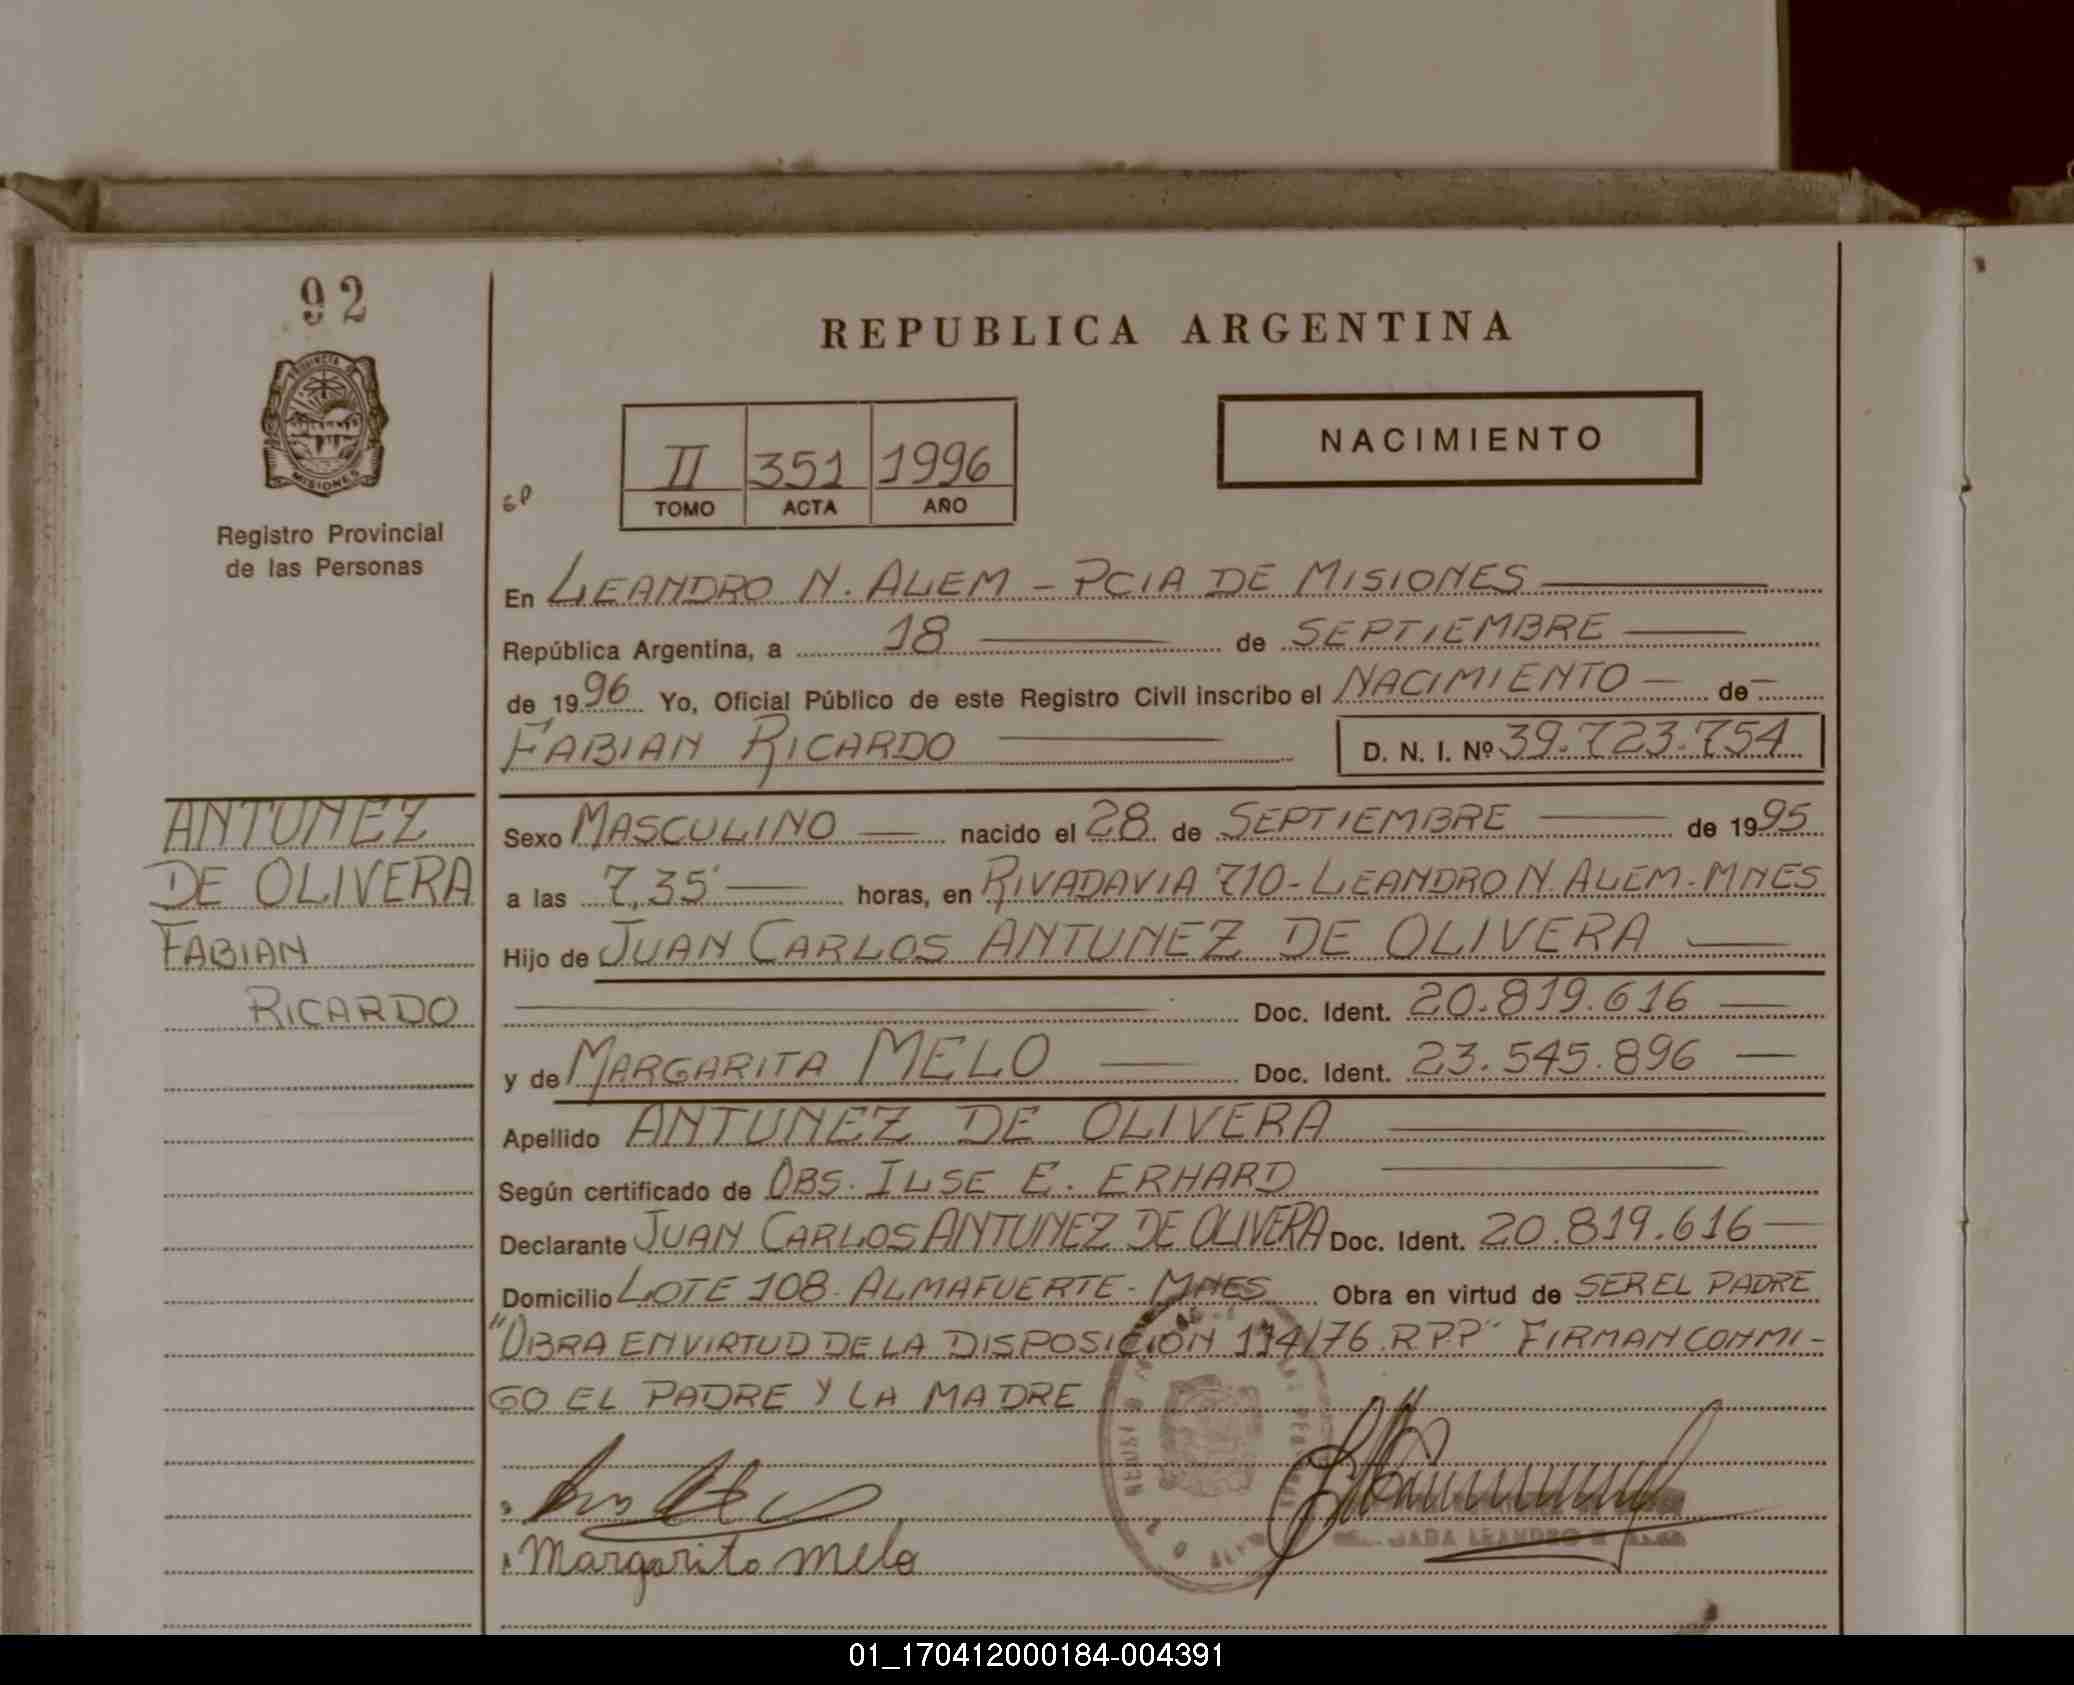 92
PROVINCIA DE
MISIONES
Registro Provincial
de las Personas
REPUBLICA ARGENTINA
NACIMIENTO
II 351 1996
TOMO ACTA AÑO
En LEANDRO N. ALEM - PCIA DE MISIONES
República Argentina, a 18 de SEPTIEMBRE
de 1996 Yo, Oficial Público de este Registro Civil inscribo el NACIMIENTO de
FABIAN RICARDO D. N. I. Nº 39.723.754
ANTUNEZ
DE OLIVERA
FABIAN
RICARDO
Sexo MASCULINO nacido el 28 de SEPTIEMBRE de 1995
a las 7,35 horas, en RIVADAVIA 710-LEANDRO N. ALEM-MNES
Hijo de JUAN CARLOS ANTUNEZ DE OLIVERA
Doc. Ident. 20.819.616
y de MARGARITA MELO Doc. Ident. 23.545.896
Apellido ANTUNEZ DE OLIVERA
Según certificado de OBS. ILSE E. ERHARD
Declarante JUAN CARLOS ANTUNEZ DE OLIVERA Doc. Ident. 20.819.616
Domicilio LOTE 108-ALMAFUERTE-MNES Obra en virtud de SER EL PADRE
"OBRA EN VIRTUD DE LA DISPOSICION 114/76 R.P.P" FIRMAN CONMI-
GO EL PADRE Y LA MADRE
Margarita melo
01_170412000184-004391